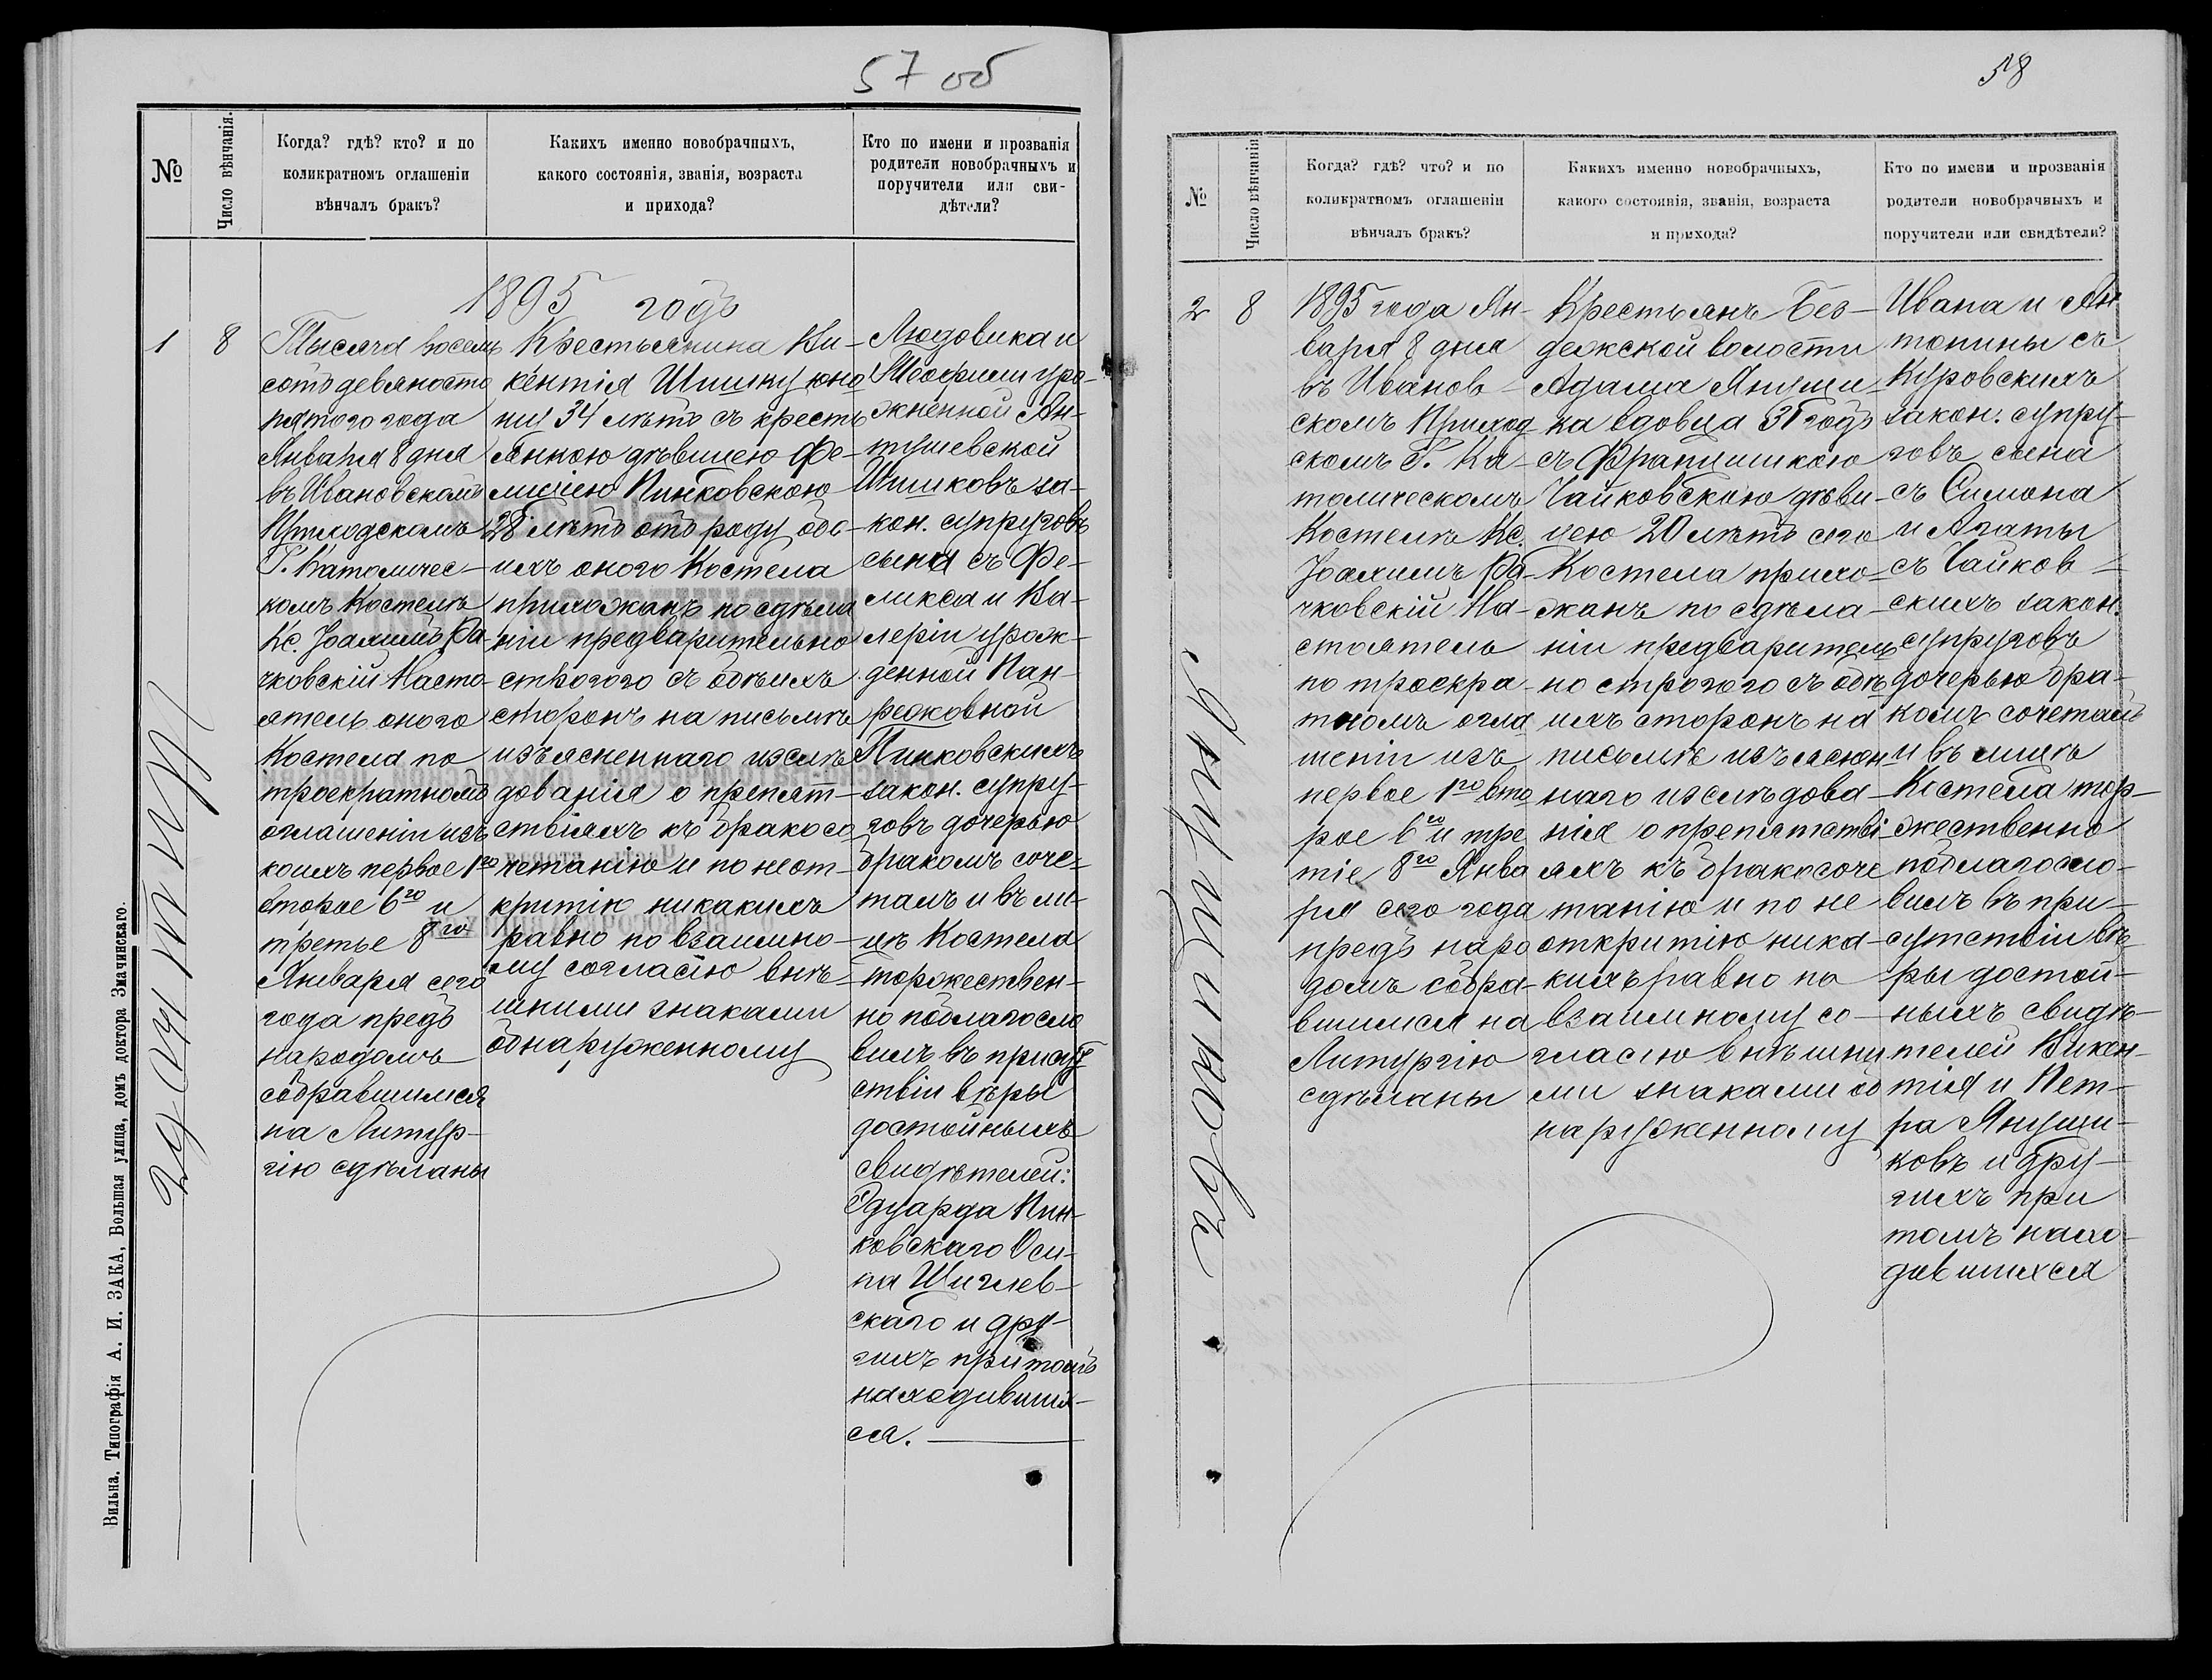 57 об
№
Число вѣнчанія.
Когда? гдѣ? кто? и по
коликратномъ оглашеніи
вѣнчалъ бракъ?
Какихъ именно новобрачныхъ,
какого состоянія, званія, возраста
и прихода?
Кто по имени и прозванія
родители новобрачныхъ и
поручители или сви-
дѣтели?
1895 годъ
1
8
Тысяча восемь
сотъ девяносто
пятого года
Января 8 дня
въ Ивановскомъ
Приходскомъ
Р. Католичес-
комъ Костелѣ
Кс. Іоахимъ Ра-
чковскій Насто-
ятель оного
Костела по
троекратномъ
оглашеніи изъ
коихъ первое 1го
второе 6го и
третье 8го
Января сего
года предъ
народомъ
собравшимся
на Литур-
гію сдѣланы
Крестьянина Ви-
кентія Шишку юно
шу 34 лѣтъ съ кресть
янкою дѣвицею Фе-
лиціею Пинковскою
28 лѣтъ отъ роду обо-
ихъ оного Костела
прихожанъ по сдѣла
ніи предварительно
строгого съ обѣихъ
сторонъ на письмѣ
изъясненнаго изслѣ
дованія о препят-
ствіяхъ къ бракосо
четанію и по неот-
критію никакихъ
равно по взаимно-
му согласію внѣ-
шними знаками
обнаруженному
Людовика и
Теофили уро-
жненной Ян-
тушевской
Шишковъ за-
кон. супруговъ
сына съ Фе-
ликса и Ва-
леріи урож-
денной Пан-
редковной
Пинковскихъ
закон. супру-
говъ дочерью
бракомъ соче-
талъ и въ ли-
цѣ Костела
торжествен-
но поблагосло
вилъ въ присут
ствіи вѣры
достойныхъ
свидѣтелей:
Эдуарда Пин-
ковскаго Оси-
па Шиглев-
скаго и дру-
гихъ при томъ
находивших-
ся.
Шишки
Вильна. Типографія А. И. ЗАКА, Большая улица, домъ доктора Змачинскаго.
58
№
Число вѣнчанія
Когда? гдѣ? что? и по
коликратномъ оглашеніи
вѣнчалъ бракъ?
Какихъ именно новобрачныхъ,
какого состоянія, званія, возраста
и прихода?
Кто по имени и прозванія
родители новобрачныхъ и
поручители или свидѣтели?
2
8
1895 года Ян-
варя 8 дня
въ Иванов-
скомъ Приход
скомъ Р. Ка-
толическомъ
Костелѣ Кс.
Іоахимъ Ра-
чковскій На-
стоятель
по троекра-
тномъ огла
шеніи изъ
первое 1го вто
рое 6го и тре
тіе 8го Янва
ря сего года
предъ наро
домъ собра-
вшимся на
Литургію
сдѣланы
Крестьянъ Без-
дежской волости
Адама Януши-
ка вдовца 31 годъ
съ Францишкою
Чайковскою дѣви-
цею 20 лѣтъ сего
Костела прихо-
жанъ по сдѣла-
ніи предваритель
но строгого съ обѣ
ихъ сторонъ на
письмѣ изъяснен
наго изслѣдова-
нія о препятстві
яхъ къ бракосоче
танію и по не
откритію ника-
кихъ равно по
взаимному со-
гласію внѣшни
ми знаками об
наруженному
Ивана и Ан
тонины съ
Куровскихъ
закон. супру-
говъ сына
съ Симона
и Агаты
съ Чайков-
скихъ закон.
супруговъ
дочерью бра-
комъ сочеталъ
и въ лицѣ
Костела тор-
жественно
поблагосло-
вилъ въ при-
сутствіи вѣ
ры достой-
ныхъ свидѣ-
телей Викен-
тія и Пет-
ра Януши-
ковъ и дру-
гихъ при
томъ нахо-
дившихся
Янушиковъ